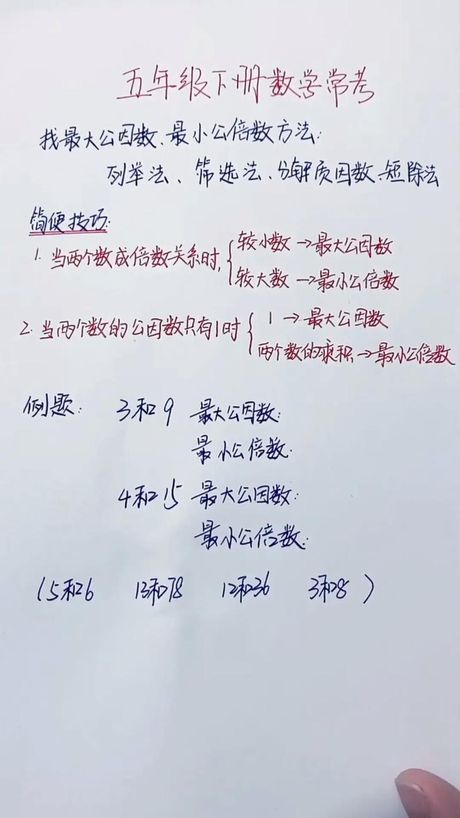 五年级下册数学常考
找最大公因数、最小公倍数方法:
列举法、筛选法、分解质因数、短除法
简便技巧:
1. 当两个数成倍数关系时, { 较小数→最大公因数
较大数→最小公倍数
2. 当两个数的公因数只有1时 { 1→最大公因数
两个数的乘积→最小公倍数
例题: 3和9 最大公因数:
最小公倍数:
4和15 最大公因数:
最小公倍数:
(5和6 13和78 12和36 3和8)